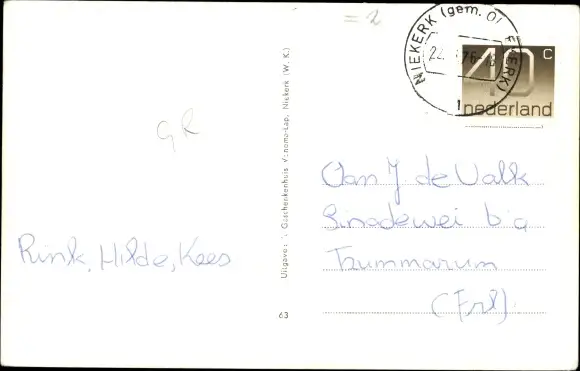 = 2
NIEKERK (gem. Ol
KERK)
76
1
40 c
nederland
GR
Rink, Hilde, Kees
Uitgave: 't Geschenkenhuis Venema-Lap, Niekerk (W. K.)
63
Aan J. de Valk
Sinedewei b a
Tzummarum
(Frl).